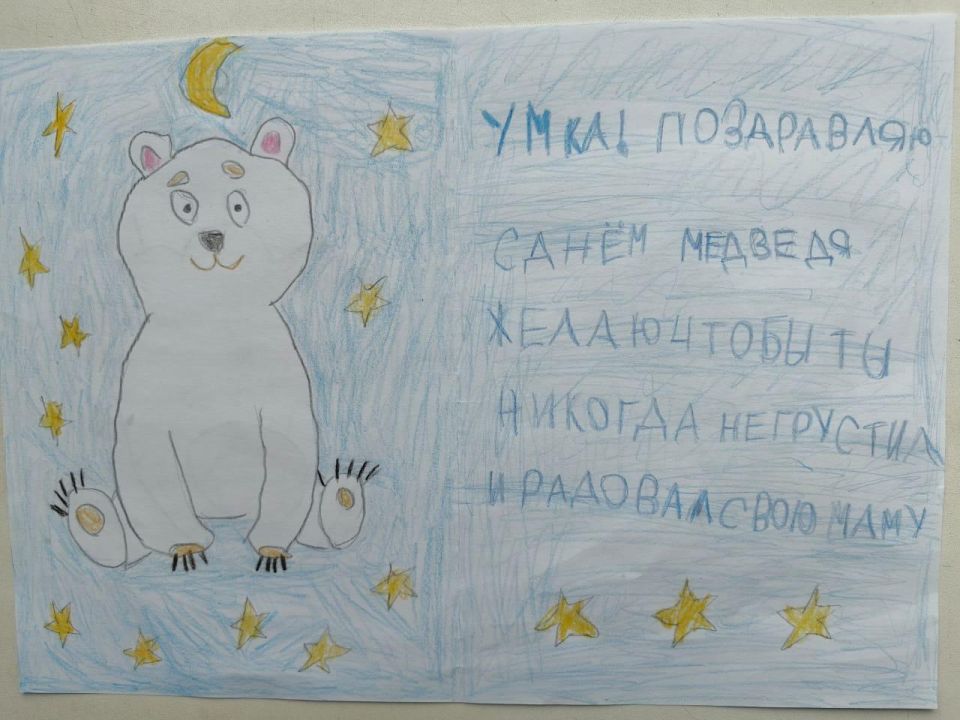 УМКА! ПОЗДРАВЛЯЮ
С ДНЁМ МЕДВЕДЯ
ЖЕЛАЮ ЧТОБЫ ТЫ
НИКОГДА НЕ ГРУСТИЛ
И РАДОВАЛ СВОЮ МАМУ